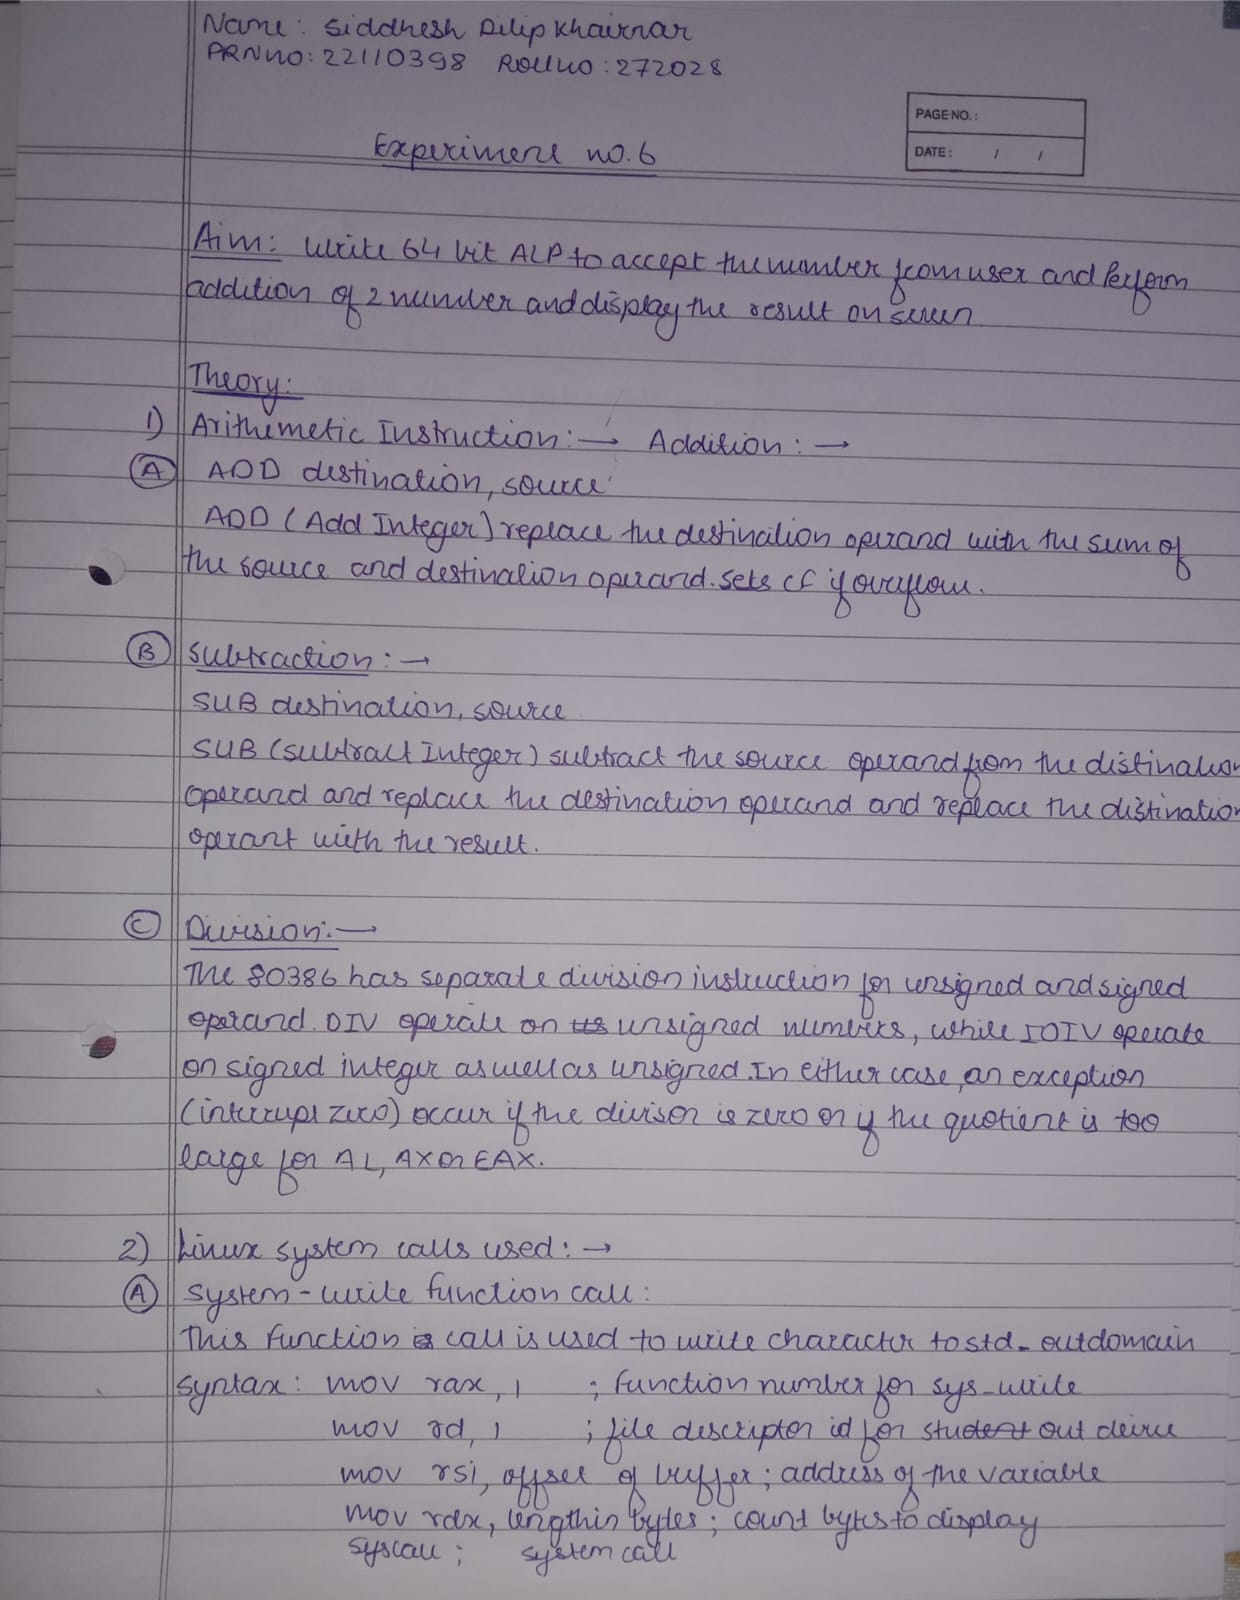 Name: Siddhesh Dilip Khairnar
PRN no: 22110398 Roll no: 272028
PAGE NO.:
DATE: / /
Experiment no. 6
Aim: Write 64 bit ALP to accept the number from user and Perform
addition of 2 number and display the result on screen
Theory:
1) Arithemetic Instruction: → Addition: →
(A) ADD destination, source
ADD (Add Integer) replace the destination operand with the sum of
the source and destination operand. sets CF if overflow.
(B) Subtraction: →
SUB destination, source
SUB (subtract Integer) subtract the source operand from the distination
operand and replace the destination operand and replace the distination
operant with the result.
(C) Division: →
The 80386 has separate division instruction for unsigned and signed
operand. DIV operate on unsigned numbers, while IDIV operate
on signed integer as well as unsigned. In either case, an exception
(interrupt zero) occur if the divisor is zero or if the quotient is too
large for AL, AX or EAX.
2) Linux system calls used: →
(A) System-write function call:
This function call is used to write character to std-out domain
Syntax: mov rax, 1 ; function number for sys_write
mov rd, 1 ; file descriptor id for student out deivce
mov rsi, offset of buffer; address of the variable
mov rdx, length in bytes; count bytes to display
syscall; system call